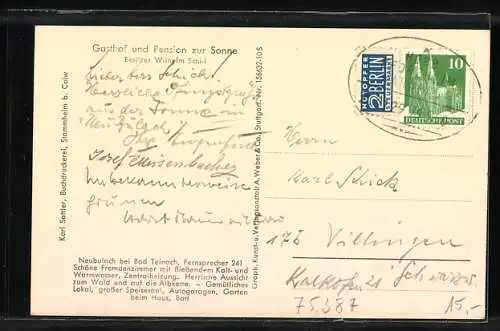 Gasthof und Pension zur Sonne
Besitzer Wilhelm
Lieber Herr Schick!
Herzliche
aus der Sonne in
Neubulach!
Ihre
Josef
Unbekannterweise
grüssen
Neubulach bei Bad Teinach, Fernsprecher 241
Schöne Fremdenzimmer mit fließendem Kalt- und
Warmwasser, Zentralheizung. Herrliche Aussicht
zum Wald und auf die Albkette. - Gemütliches
Lokal, großer Speisesaal, Autogaragen, Garten
beim Haus, Bad
Karl Sattler, Buchdruckerei, Stammheim b. Calw
Graph. Kunst- u. Verlagsanstalt A. Weber & Co., Stuttgart. Nr. 156632-10 S
NOTOPFER
2 BERLIN
STEUERMARKE
10
DEUTSCHE POST
Herrn
Karl Schick
17b Villingen
Kalkofen 21 Schwarzw.
75387
15,-